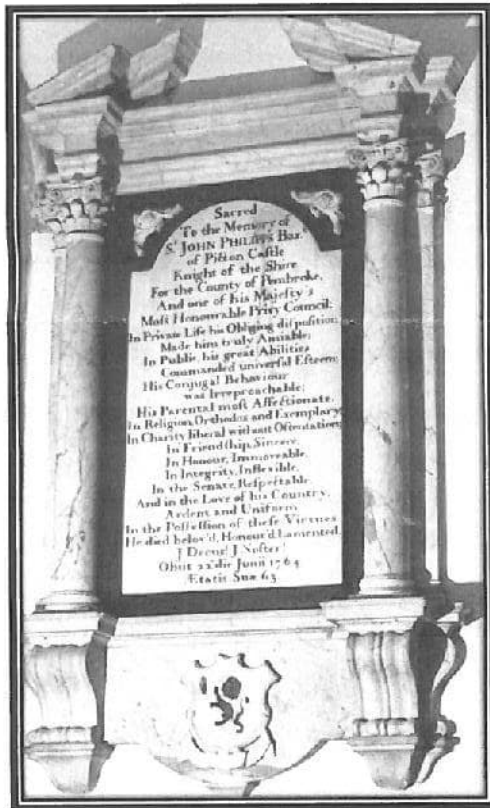 Sacred
To the Memory of
Sr JOHN PHILIPPS Bar.t
of Picton Castle
Knight of the Shire
For the County of Pembroke,
And one of his Majesty's
Most Honourable Privy Council;
In Private Life his Obliging disposition
Made him truly Amiable;
In Public, his great Abilities
Commanded universal Esteem;
His Conjugal Behaviour
was Irreproachable;
His Parental most Affectionate.
In Religion, Orthodox and Exemplary;
In Charity liberal without Ostentation;
In Friendship, Sincere,
In Honour, Immoveable,
In Integrity, Inflexible,
In the Senate, Respectable
And in the Love of his Country,
Ardent and Uniform
In the Possession of these Virtues
He died belov'd, Honour'd, Lamented.
I Decus! I Noster!
Obiit 22° die Junii 1764
Ætatis Suæ 63